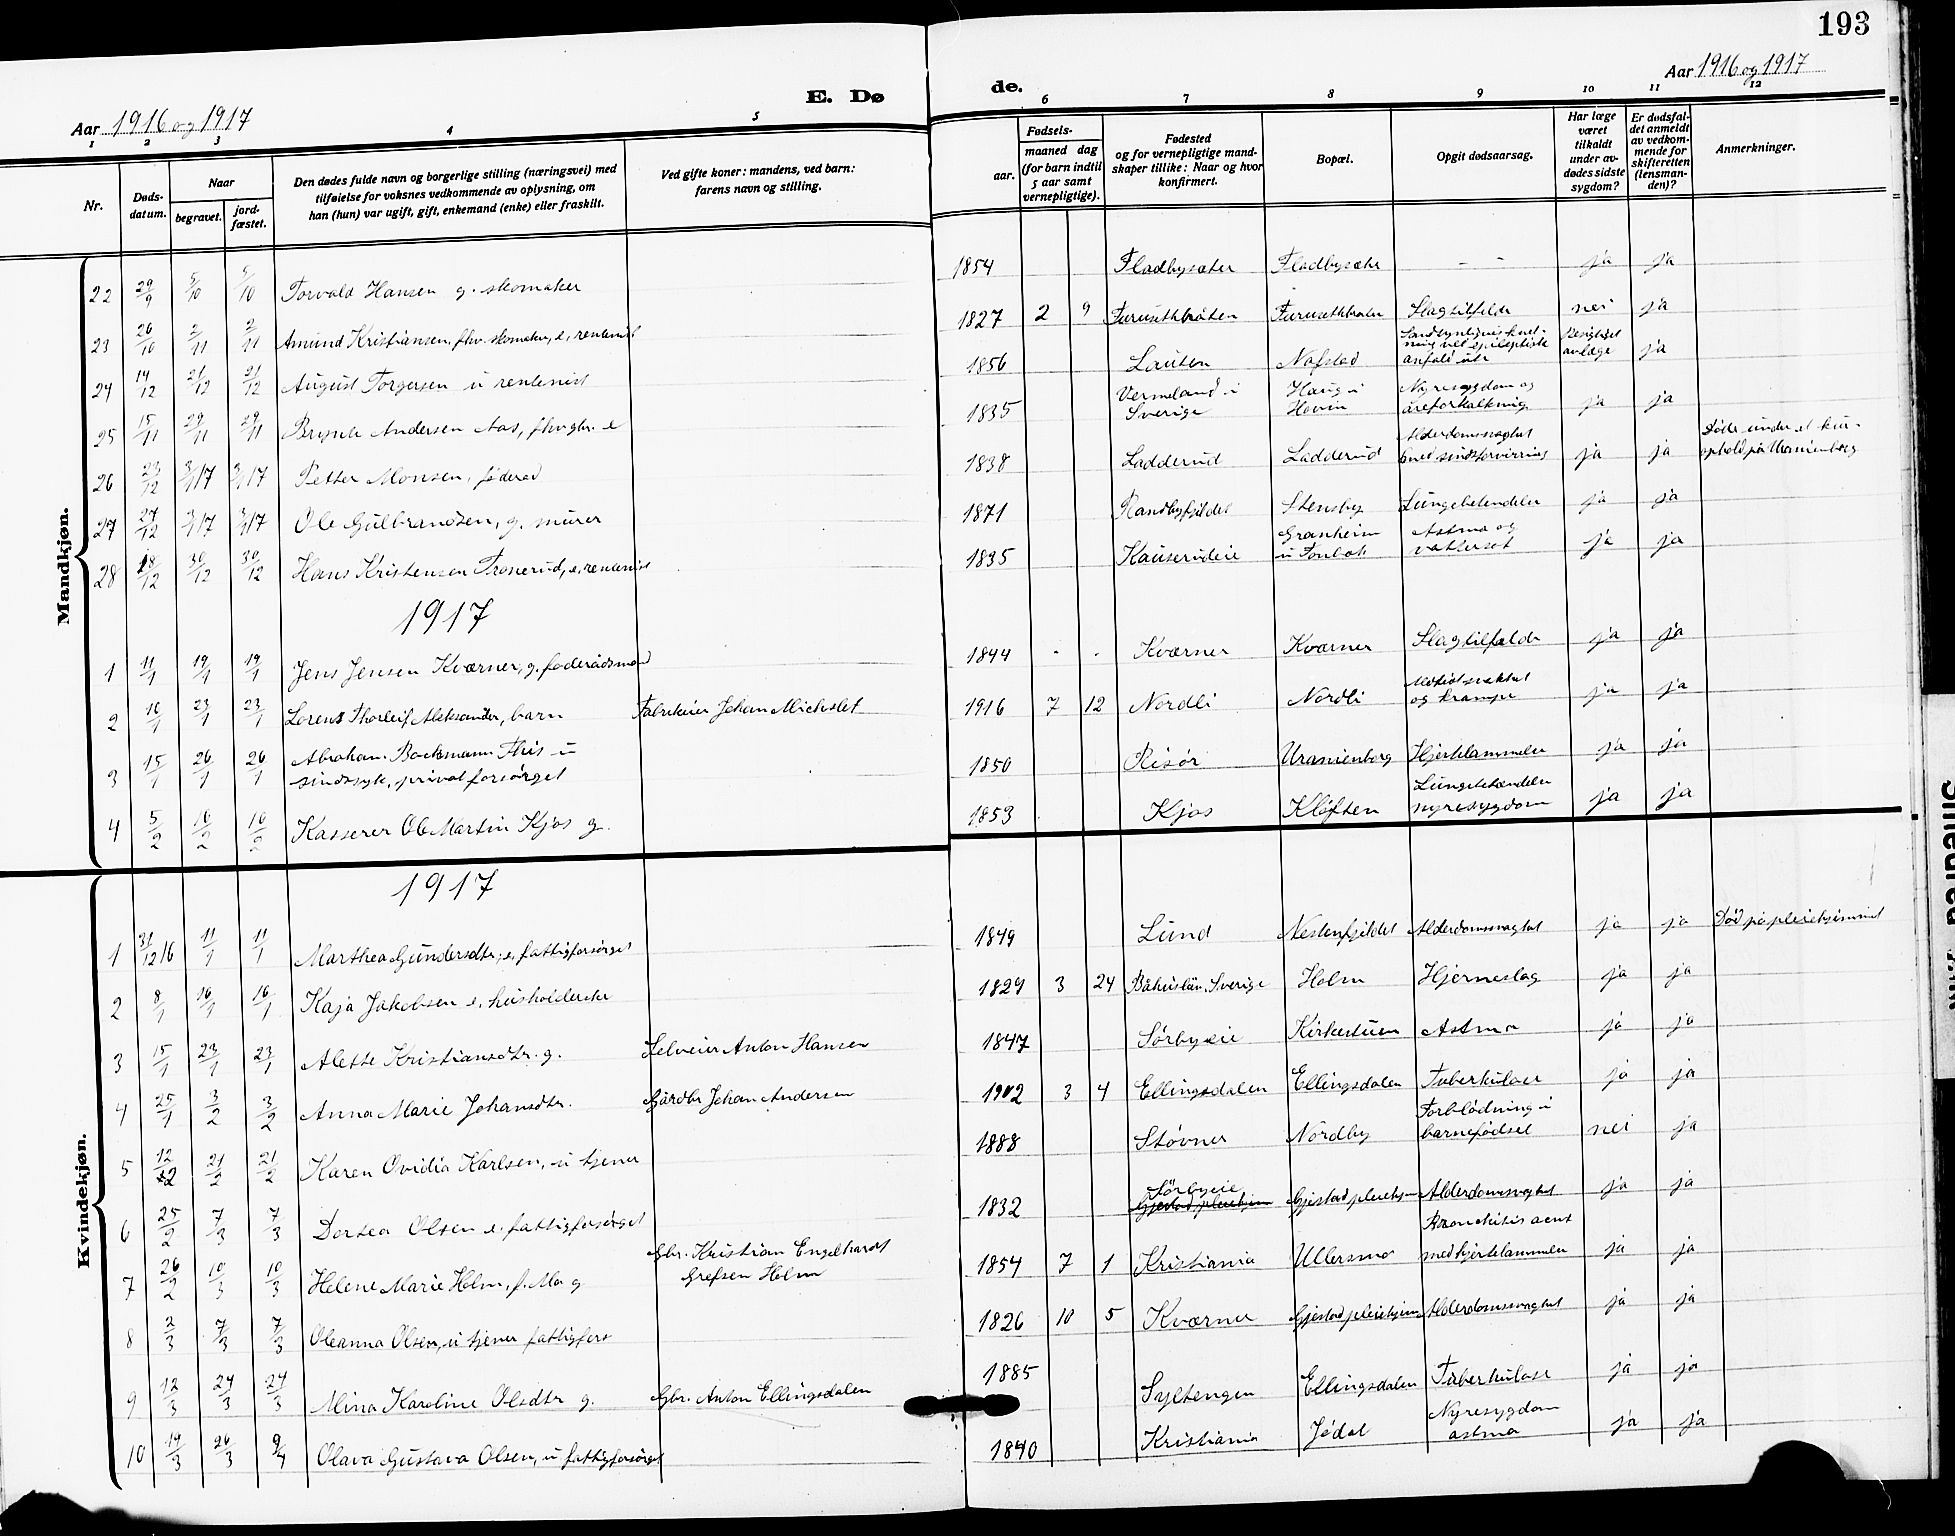 193
Aar 1916 og 1917
E. Dø
de.
Aar 1916 og 1917
1 2 3 4 5 6 7 8 9 10 11 12
Nr.
Døds-
datum.
Naar
begravet.
jord-
fæstet.
Den dødes fulde navn og borgerlige stilling (næringsvei) med
tilføielse for voksnes vedkommende av oplysning, om
han (hun) var ugift, gift, enkemand (enke) eller fraskilt.
Ved gifte koner: mandens, ved barn:
farens navn og stilling.
Fødsels-
aar.
maaned dag
(for barn indtil
5 aar samt
vernepligtige).
Fødested
og for vernepligtige mand-
skaper tillike: Naar og hvor
konfirmert.
Bopæl.
Opgit dødsaarsag.
Har læge
været
tilkaldt
under av-
dødes sidste
sygdom?
Er dødsfal-
det anmeldt
av vedkom-
mende for
skifteretten
(lensman-
den)?
Anmerkninger.
Mandkjøn.
22 29/9 5/10 5/10 Torvald Hansen g. skomaker 1854 Fladbysæter Fladbysæter - - ja ja
23 26/10 2/11 2/11 Amund Kristiansen, fhv. skomaker, e, rentenist 1827 2 9 Furusethbråten Furusethbraten Slagtilfelde nei ja
24 14/12 21/12 21/12 August Torgersen u rentenist 1856 Lauten Nafstad anfald ute Besigtiget av læge ja
25 15/11 29/11 29/11 Brynte Andersen Aas, fhv gbr. e 1835 Vermeland i Sverige Haug i Hovin Nyresygdom og åreforkalkning ja ja
26 23/12 3/1 17 3/1 17 Petter Monsen, føderad 1838 Ladderud Ladderud Alderdomssvaghet med sindsforvirring ja ja Døde under et kur-
ophold på Uranienborg
27 27/12 3/1 17 3/1 17 Ole Gulbrandsen, g. murer 1871 Randbyfjeldet Stensby Lungebetendelse ja ja
28 18/12 30/12 30/12 Hans Kristensen Tronerud, e, rentenist 1835 Kauserudeie Granheim Astma og vattersot ja ja
1917
1 11/1 19/1 19/1 Jens Jensen Kværner, g. føderådsmand 1844 - - Kværner Kværner Slagtilfælde ja ja
2 10/1 23/1 23/1 Lorens Thorleif Aleksander, barn Fabrikeier Johan Michelet 1916 7 12 Nordli Nordli og krampe ja ja
3 15/1 26/1 26/1 Abraham Bockmann This u
sindssyk, privat forsørget 1850 Risør Uranienborg Hjertelammelse ja ja
4 5/2 16/2 16/2 Kasserer Ole Martin Kjos g. 1853 Kjos Kløften Lungebetændelse nyresygdom ja ja
Kvindekjøn.
1917
1 31/12 16 11/1 11/1 Marthea Gundersdtr, e, fattigforsørget 1849 Lund Nestenfjeldet Alderdomssvaghet ja ja Død på pleiehjemmet
2 8/1 16/1 16/1 Kaja Jakobsen e, husholderske 1829 3 24 Båhuslän, Sverige Holm Hjerneslag ja ja
3 15/1 23/1 23/1 Alette Kristiansdtr. g. Selveier Anton Hansen 1847 Sørbyeie Kirkestuen Astma ja ja
4 25/1 3/2 3/2 Anna Marie Johansdtr. Gårdbr Johan Andersen 1902 3 4 Ellingsdalen Ellingsdalen Tuberkulose ja ja
5 12/2 21/2 21/2 Karen Ovidia Karlsen, u tjener 1888 Støvner Nordby Forblødning i barnefødsel nei ja
6 25/2 7/3 7/3 Dortea Olsen e. fattigforsørget 1832 Sørbyeie Gjestad pleiehjem Gjestad pleiehjem Alderdomssvaghet ja ja
7 26/2 10/3 10/3 Helene Marie Holm, f. Mo g Gbr. Kristian Engelhardt
Grefsen Holm 1854 7 1 Kristiania Ullersmo Bronchitis acut med hjertelammelse ja ja
8 2/3 7/3 7/3 Oleanna Olsen, u tjener fattigfors 1826 10 5 Kværner Gjestad pleiehjem Alderdomssvaghet ja ja
9 12/3 24/3 24/3 Mina Karoline Olsdtr g. Gbr. Anton Ellingsdalen 1885 Syltengen Ellingsdalen Tuberkulose ja ja
10 14/3 26/3 9/4 Olava Gustava Olsen, u fattigforsørget 1840 Kristiania Jødal Nyresygdom astma ja ja